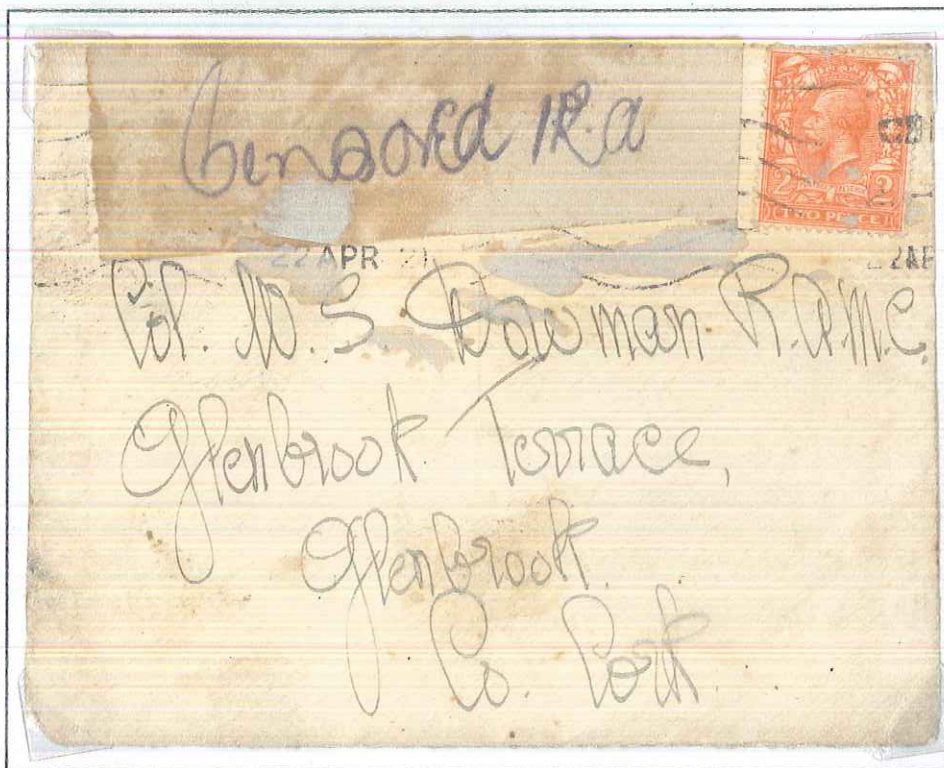 Censored IRA
TWO PENCE
2 2
22 APR 21
Col. W. S. Bowman R.A.M.C.
Glenbrook Terrace,
Glenbrook.
Co. Cork